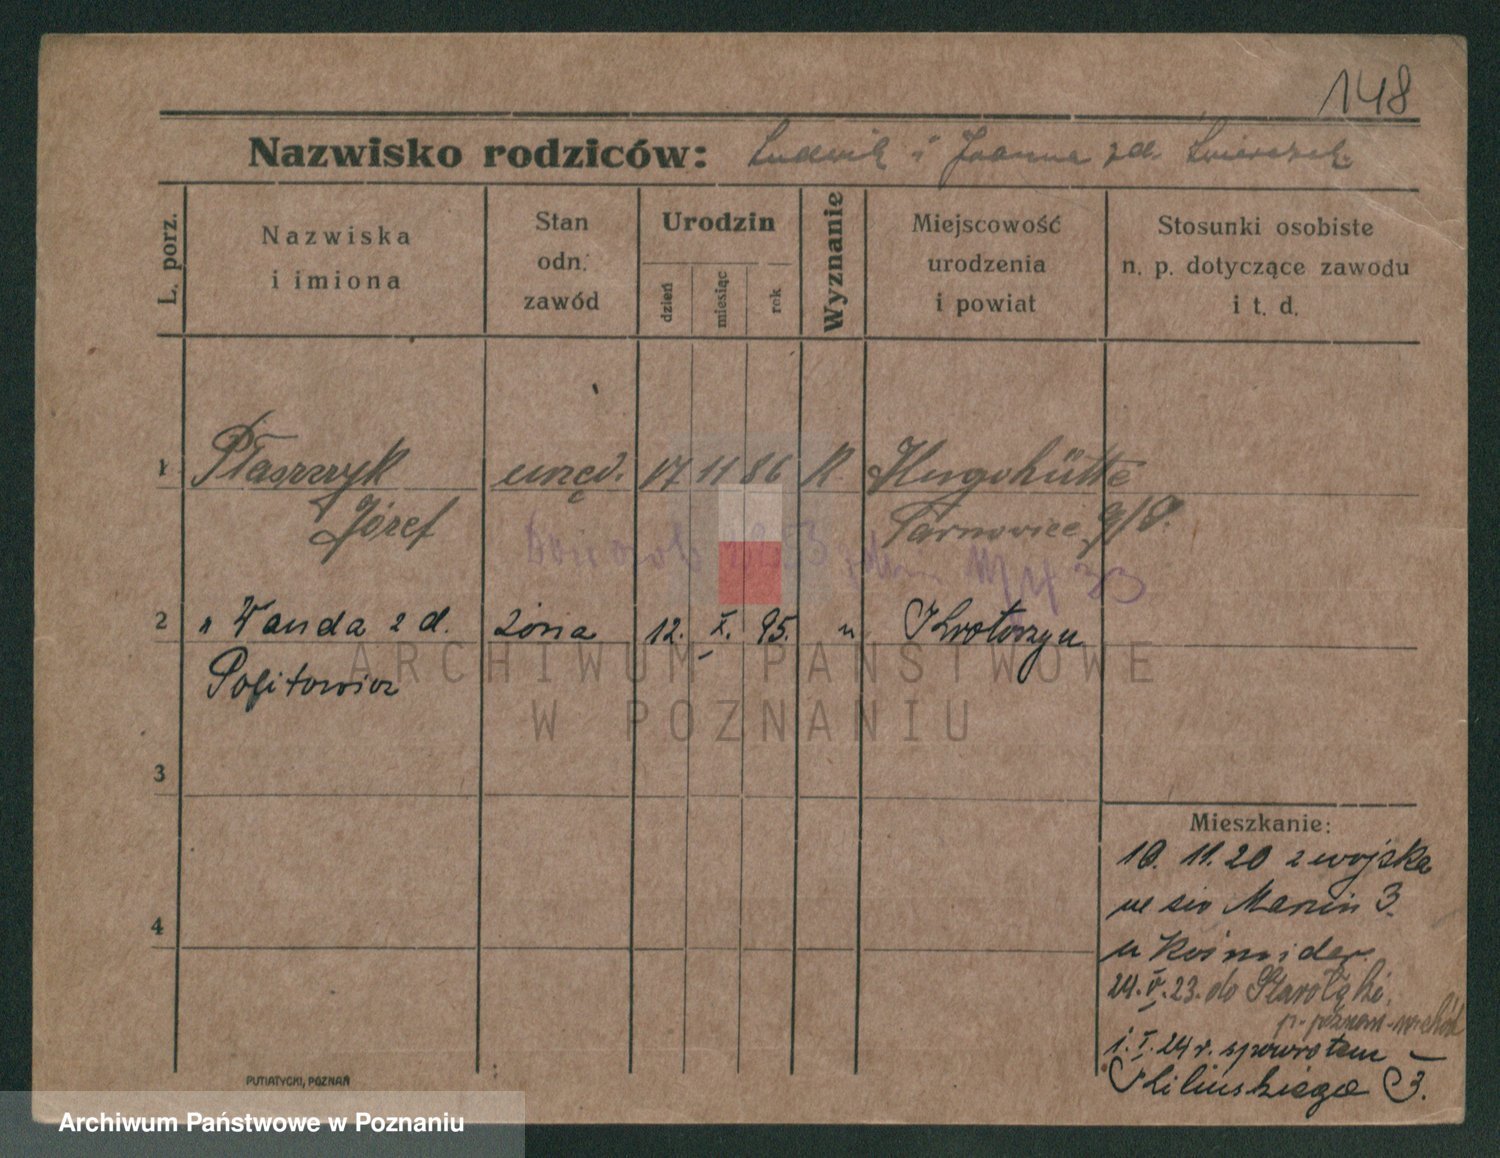 148
Nazwisko rodziców: Ludwik i Joanna zd.
L. porz.
Nazwiska
i imiona
Stan
odn.
zawód
Urodzin
dzień
miesiąc
rok
Wyznanie
Miejscowość
urodzenia
i powiat
Stosunki osobiste
n. p. dotyczące zawodu
i t. d.
1 Ptaszyk urzęd. 17 11 86 K. Hugohütte
Józef Tarnowice g/S.
2 " Wanda z d. żona 12. X. 95. " Krotoszyn
Politowicz
3
4
Mieszkanie:
10. 11. 20 z wojska
Marcin 3.
u
24. V. 23. do Starołęki,
p. poznań-wschód
1. I. 24 r. spowrotem —
Kilińskiego 3.
PUTIATYCKI, POZNAŃ
ARCHIWUM PAŃSTWOWE
W POZNANIU
Archiwum Państwowe w Poznaniu